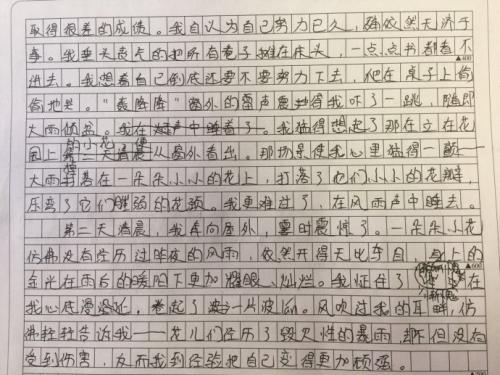 取得很差的成绩。我自认为自己努力已久,确依然无济于
事。我垂头丧气的把所有卷子摊在床头,一点点书都看不
进去。我想着自己到底还要不要努力下去,爬在桌子上偷
偷地哭。"轰隆隆"窗外的雷声震得我吓了一跳,随即
大雨倾盆。我猛得想起了那在立在花
园上的小花,便从窗外看出。那场景使我心里猛得一颤——
大雨打落在一朵朵小小的花上,打落了他们小小的花瓣,
压弯了它们脆弱的花颈。我更难过了,在风雨声中睡去。
第二天清晨,我再向窗外,霎时震惊了。一朵朵小花
仿佛没有经历过昨夜的风雨,依然开得夭出夺目,身上的
金光在雨后的暖阳下更加耀眼、灿烂。我怔住了
我心底滑过,卷起了一片波瓜。风吹过我的耳畔,仿
佛拉拉告诉我——花儿们经历了毁灭性的暴雨,却不但没有
受到伤害,反而我到经验把自己变得更加顽强。